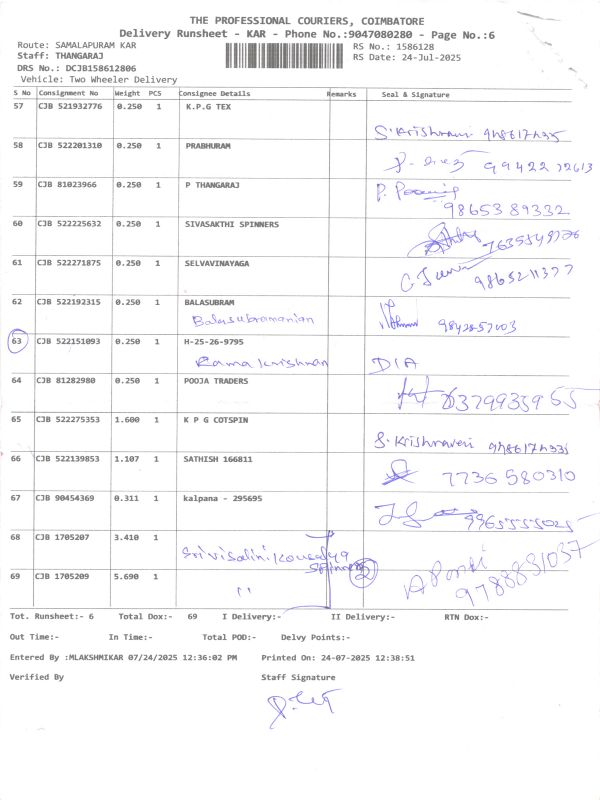 THE PROFESSIONAL COURIERS, COIMBATORE
Delivery Runsheet - KAR - Phone No.:9047080280 - Page No.:6
Route: SAMALAPURAM KAR RS No.: 1586128
Staff: THANGARAJ RS Date: 24-Jul-2025
DRS No.: DCJB158612806
Vehicle: Two Wheeler Delivery
S No Consignment No Weight PCS Consignee Details Remarks Seal & Signature
57 CJB 521932776 0.250 1 K.P.G TEX
S. Krishnaveni
58 CJB 522201310 0.250 1 PRABHURAM
59 CJB 81023966 0.250 1 P THANGARAJ
9865389332
60 CJB 522225632 0.250 1 SIVASAKTHI SPINNERS
61 CJB 522271875 0.250 1 SELVAVINAYAGA
62 CJB 522192315 0.250 1 BALASUBRAM
Balasubramanian
63 CJB 522151093 0.250 1 H-25-26-9795
Ramakrishnan DIA
64 CJB 81282980 0.250 1 POOJA TRADERS
65 CJB 522275353 1.600 1 K P G COTSPIN
S. Krishnaveni
66 CJB 522139853 1.107 1 SATHISH 166811
7736 580310
67 CJB 90454369 0.311 1 kalpana - 295695
68 CJB 1705207 3.410 1
Srivisalini Kousalya
Spinners 2
69 CJB 1705209 5.690 1 "
9788831037
Tot. Runsheet:- 6 Total Dox:- 69 I Delivery:- II Delivery:- RTN Dox:-
Out Time:- In Time:- Total POD:- Delvy Points:-
Entered By :MLAKSHMIKAR 07/24/2025 12:36:02 PM Printed On: 24-07-2025 12:38:51
Verified By Staff Signature